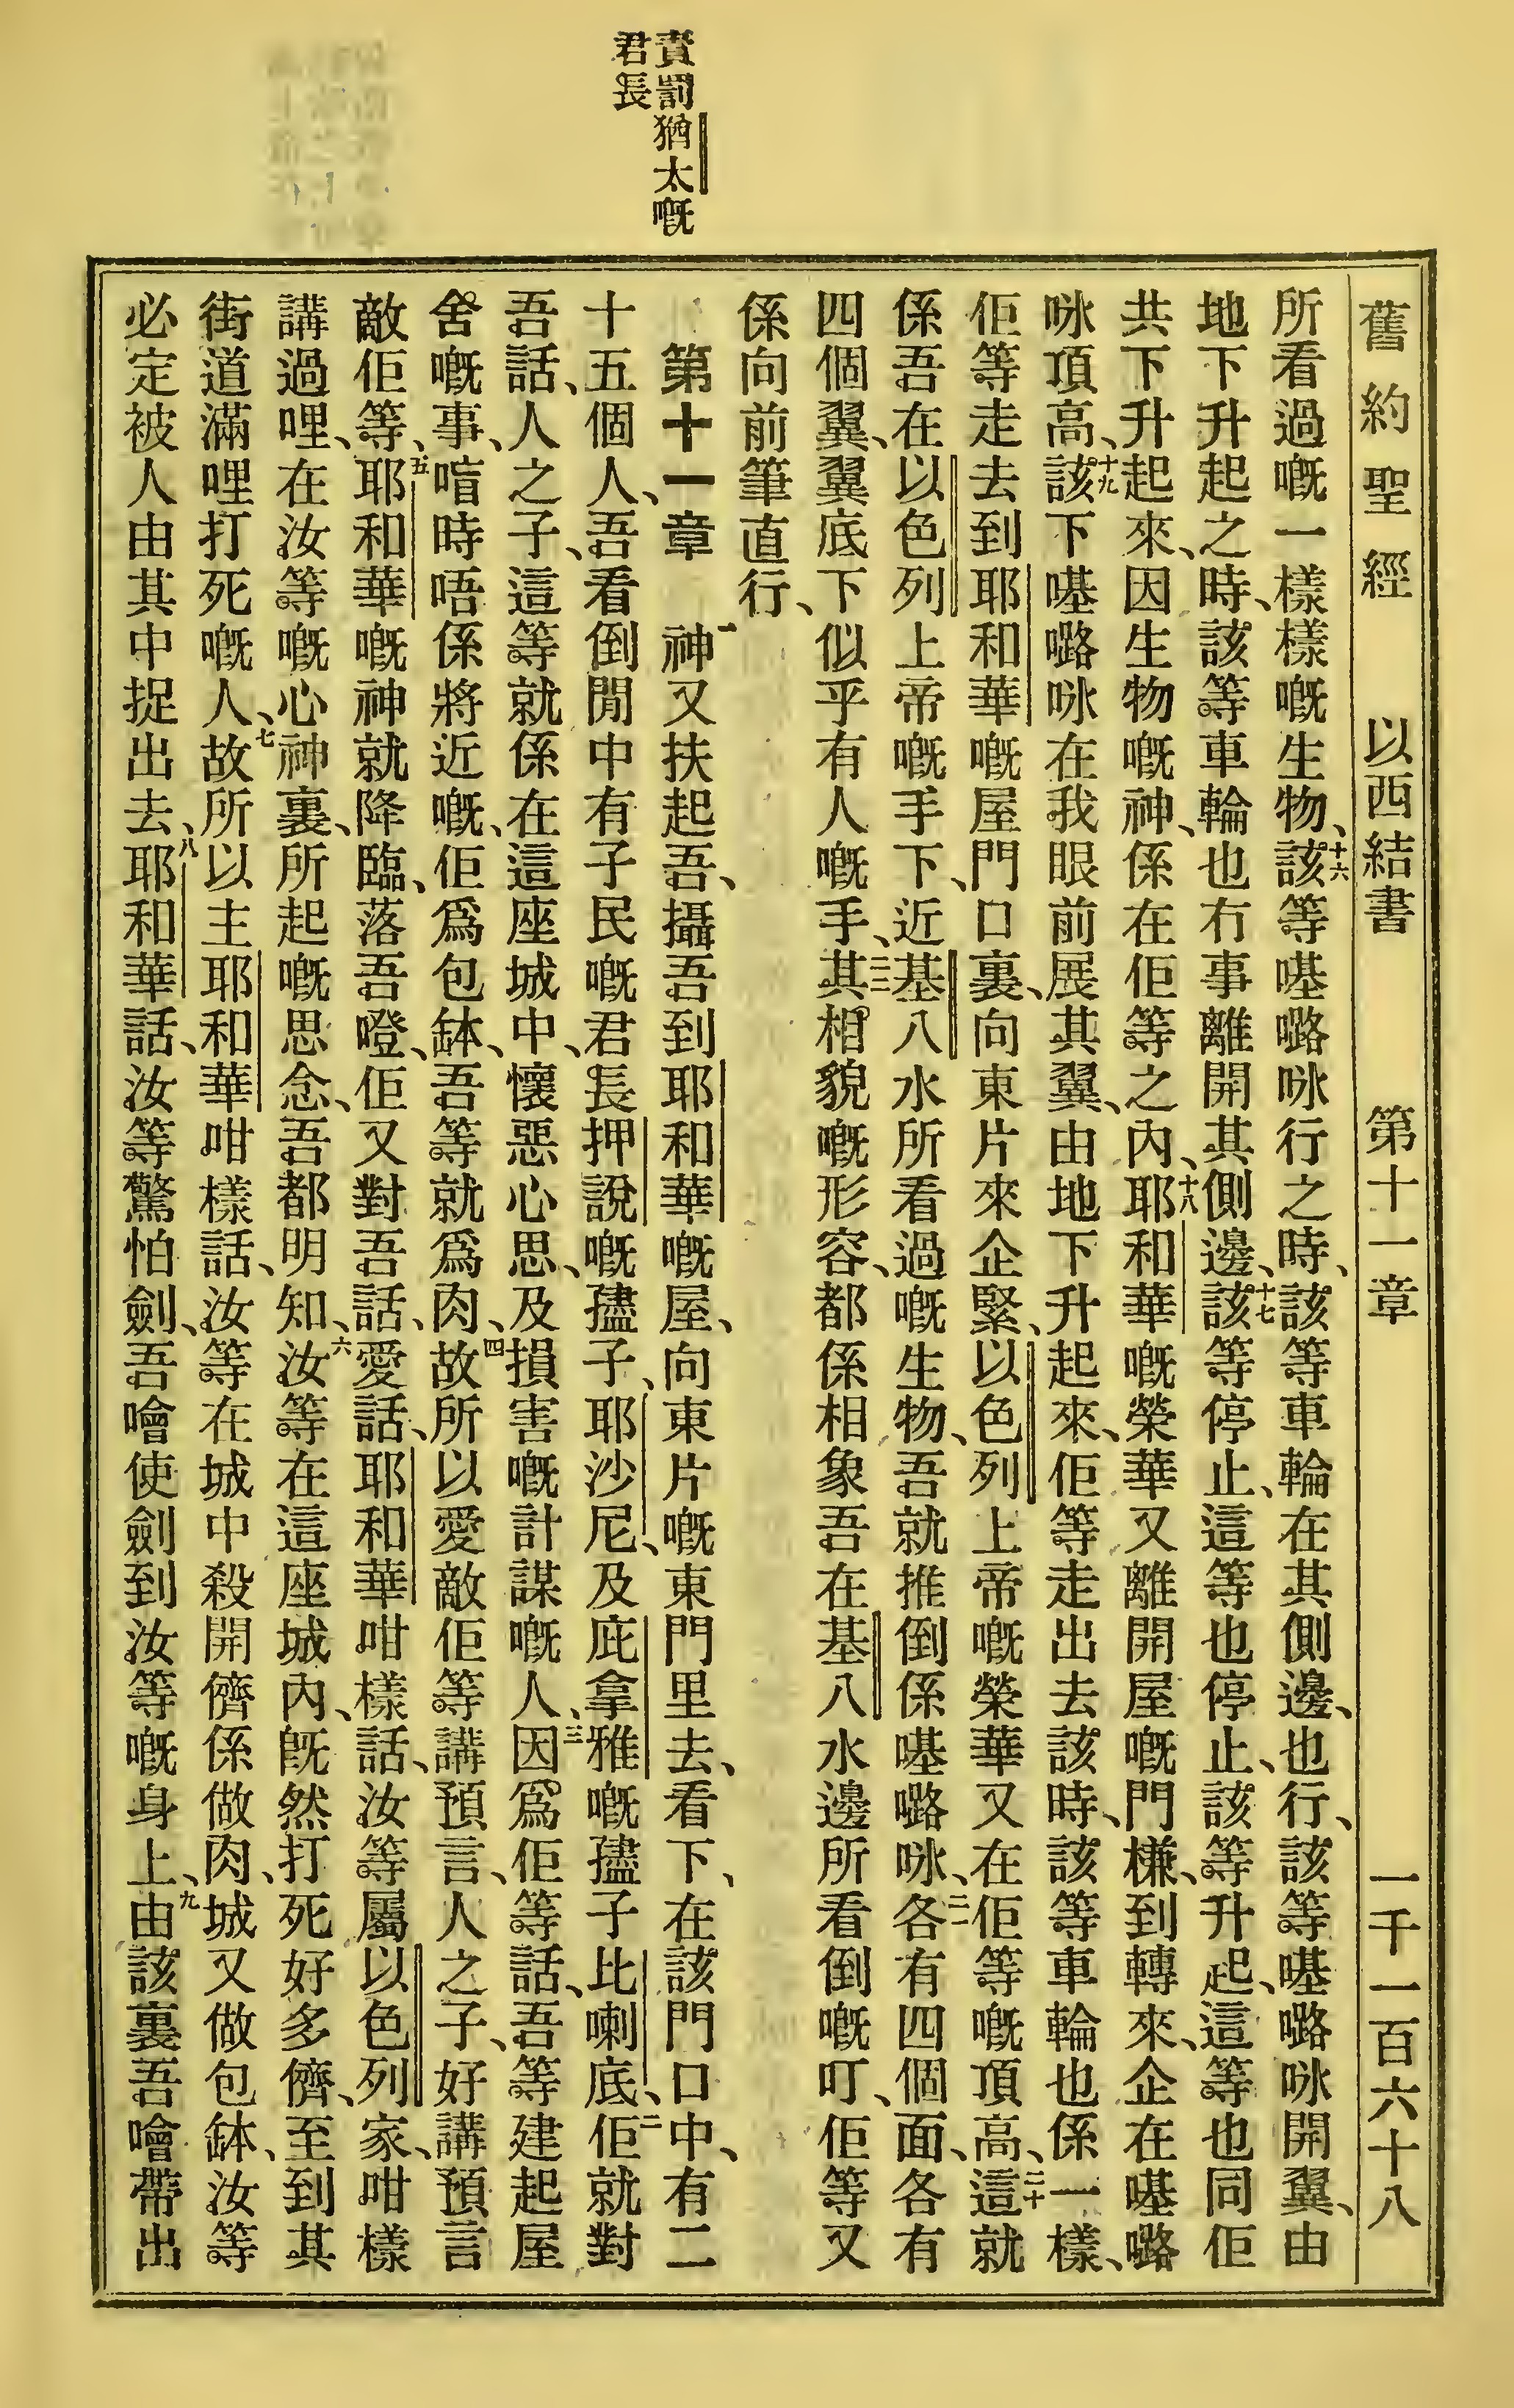 舊約聖經 以西結書 第十一章 一千一百六十八
責罰猶太嘅
君長
所看過嘅一樣樣嘅生物、十六該等𠸄㘔咏行之時、該等車輪在其側邊、也行、該等𠸄㘔咏開翼、由
地下升起之時、該等車輪也冇事離開其側邊、十七該等停止、這等也停止、該等升起、這等也同佢
共下升起來、因生物嘅神、係在佢等之內、十八耶和華嘅榮華又離開屋嘅門槏、到轉來、企在𠸄㘔
咏頂高、十九該下𠸄㘔咏在我眼前展其翼、由地下升起來、佢等走出去該時、該等車輪也係一樣、
佢等走去到耶和華嘅屋門口裏、向東片來企緊、以色列上帝嘅榮華又在佢等嘅頂高、二十這就
係吾在以色列上帝嘅手下、近基八水所看過嘅生物、吾就推倒係𠸄㘔咏、二一各有四個面、各有
四個翼、翼底下似乎有人嘅手、二二其相貌嘅形容、都係相象吾在基八水邊所看倒嘅叮、佢等又
係向前筆直行、
第十一章 一神又扶起吾、攝吾到耶和華嘅屋、向東片嘅東門里去、看下、在該門口中、有二
十五個人、吾看倒閒中有子民嘅君長押說嘅孻子、耶沙尼、及庇拿雅嘅孻子比喇底、二佢就對
吾話、人之子、這等就係在這座城中、懷惡心思、及損害嘅計謀嘅人、三因爲佢等話、吾等建起屋
舍嘅事、喑時唔係將近嘅、佢爲包鉢、吾等就爲肉、四故所以愛敵佢等講預言、人之子、好講預言
敵佢等、五耶和華嘅神就降臨、落吾噔、佢又對吾話、愛話、耶和華咁樣話、汝等屬以色列家、咁樣
講過哩、在汝等嘅心神裏、所起嘅思念、吾都明知、六汝等在這座城內、旣然打死好多儕、至到其
街道滿哩打死嘅人、七故所以主耶和華咁樣話、汝等在城中殺開儕係做肉、城又做包鉢、汝等
必定被人由其中捉出去、八耶和華話、汝等驚怕劍、吾噲使劍到汝等嘅身上、九由該裏吾噲帶出